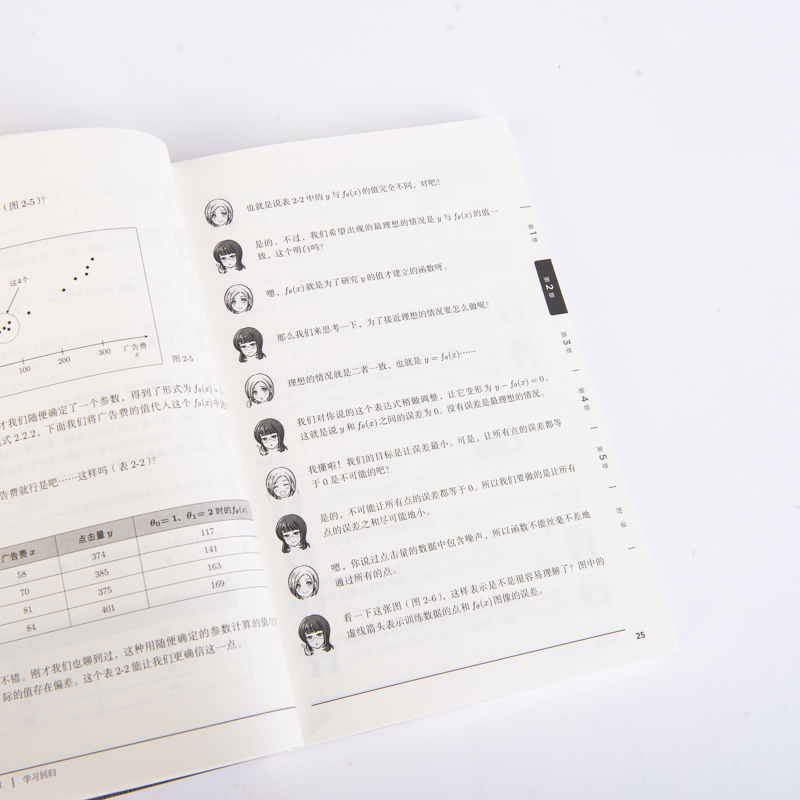 （图 2-5）？
这4个
100
200
300
广告费
x
图 2-5
才我们随便确定了一个参数，得到了形式为 fθ(x) =
式 2.2.2，下面我们将广告费的值代入这个 fθ(x) 中
告费就行是吧……这样吗（表 2-2）？
广告费 x 点击量 y θ0 = 1、θ1 = 2 时的fθ(x)
58 374 117
70 385 141
81 375 163
84 401 169
不错。刚才我们也聊到过，这种用随便确定的参数计算的值与
际的值存在偏差。这个表 2-2 能让我们更确信这一点。
学习回归
也就是说表 2-2 中的 y 与 fθ(x) 的值完全不同，对吧？
是的。不过，我们希望出现的最理想的情况是 y 与 fθ(x) 的值一
致，这个明白吗？
嗯，fθ(x) 就是为了研究 y 的值才建立的函数呀。
那么我们来思考一下，为了接近理想的情况要怎么做呢？
理想的情况就是二者一致，也就是 y = fθ(x)……
我们对你说的这个表达式稍做调整，让它变形为 y − fθ(x) = 0。
这就是说 y 和 fθ(x) 之间的误差为 0。没有误差是最理想的情况。
我懂啦！我们的目标是让误差最小。可是，让所有点的误差都等
于 0 是不可能的吧？
是的，不可能让所有点的误差都等于 0。所以我们要做的是让所有
点的误差之和尽可能地小。
嗯，你说过点击量的数据中包含噪声，所以函数不能丝毫不差地
通过所有的点。
看一下这张图（图 2-6），这样表示是不是很容易理解了？图中的
虚线箭头表示训练数据的点和 fθ(x) 图像的误差。
25
第1章
第2章
第3章
第4章
第5章
附录